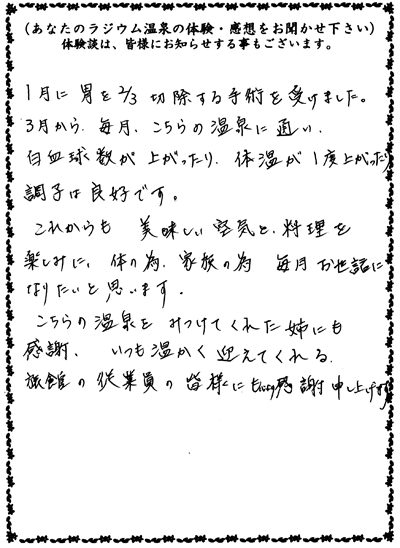 (あなたのラジウム温泉の体験・感想をお聞かせ下さい)
体験談は、皆様にお知らせする事もございます。
1月に胃を2/3切除する手術を受けました。
3月から、毎月、こちらの温泉に通い、
白血球数が上がったり、体温が1度上がったり
調子は良好です。
これからも 美味しい空気と、料理を
楽しみに、体の為、家族の為 毎月お世話に
なりたいと思います。
こちらの温泉を みつけてくれた姉にも
感謝、 いつも温かく迎えてくれる、
旅館の従業員の皆様にも 感謝申し上げます